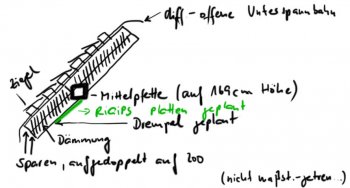 diff-offene Unterspannbahn
Ziegel
Mittelpfette (auf 169cm Höhe)
Rigips platten geplant
Drempel geplant
Dämmung
Sparen, aufgedoppelt auf 200
(nicht maßst.-getreu...)